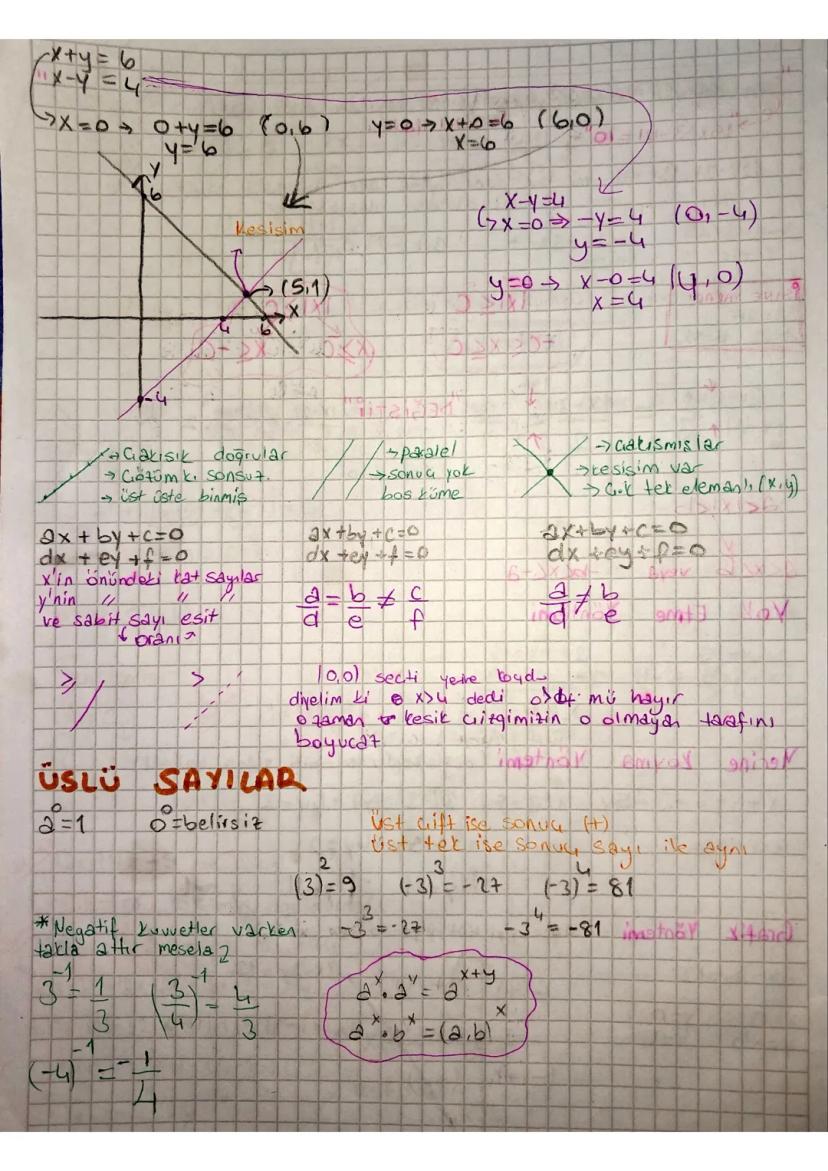 x+y=6
x-y=4
x=0→ 0+y=6 (0,6) y=0→x+0=6 (6,0)
y=6 x=6
y
6
x-y=4
x=0⇒ -y=4 (0,-4)
y=-4
Kesişim
y=0→ x-0=4 (4,0)
x=4
→(5,1)
x
4 6
-4
→Çakışık doğrular
→Çözüm k. sonsuz.
→üst üste binmiş
→paralel
→sonuç yok
boş küme
→çakışmışlar
→kesişim var
→Ç.k tek elemanlı (x,y)
ax+by+c=0
dx+ey+f=0
x'in önündeki kat sayılar
y'nin " " "
ve sabit sayı eşit
oranı
ax+by+c=0
dx+ey+f=0
a/d = b/e ≠ c/f
ax+by+c=0
dx+ey+f=0
a/d ≠ b/e
≥ >
(0,0) seçti yerine koydu
diyelim ki x>4 dedi 0>4 mü hayır
o zaman kesik çizgimizin 0 olmayan tarafını
boyucaz
ÜSLÜ SAYILAR
a⁰=1 0⁰=belirsiz
üst çift ise sonuç (+)
üst tek ise sonuç sayı ile aynı
(3)²=9 (-3)³=-27 (-3)⁴=81
-3³=-27 -3⁴=-81
*Negatif kuvvetler varken
takla attır mesela
3⁻¹=1/3 (3/4)⁻¹=4/3
(-4)⁻¹=-1/4
aˣ.aʸ=aˣ⁺ʸ
aˣ.bˣ=(a.b)ˣ